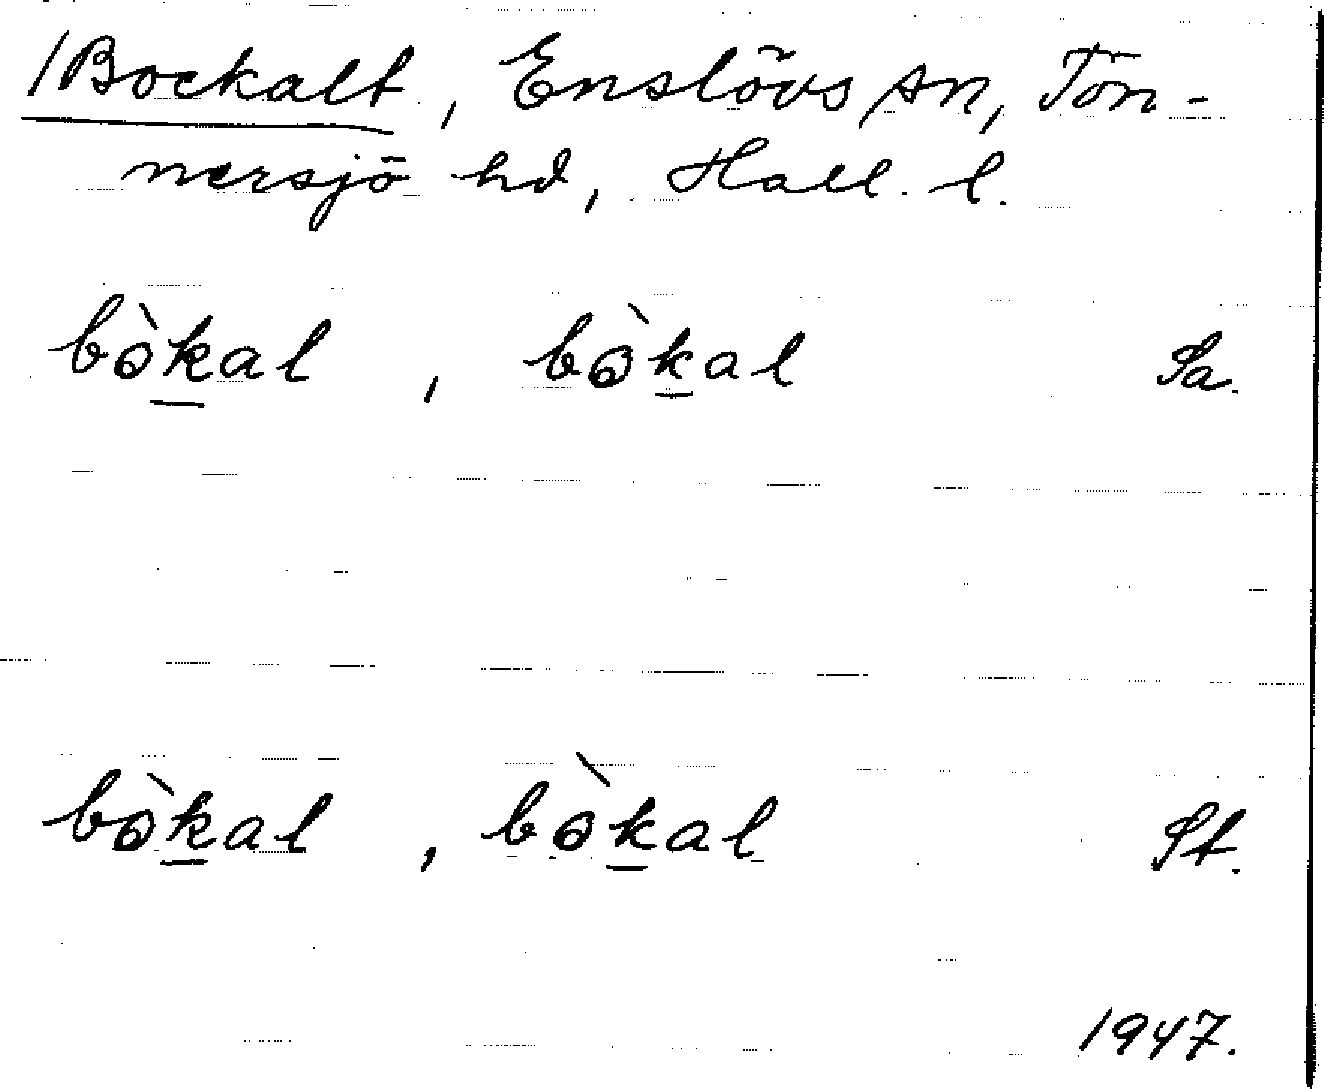 /Bockalt, Enslövs sn, Tön-
nersjö hd, Hall. l.
bòkal, bòkal Sa.
bòkal, bòkal St.
1947.